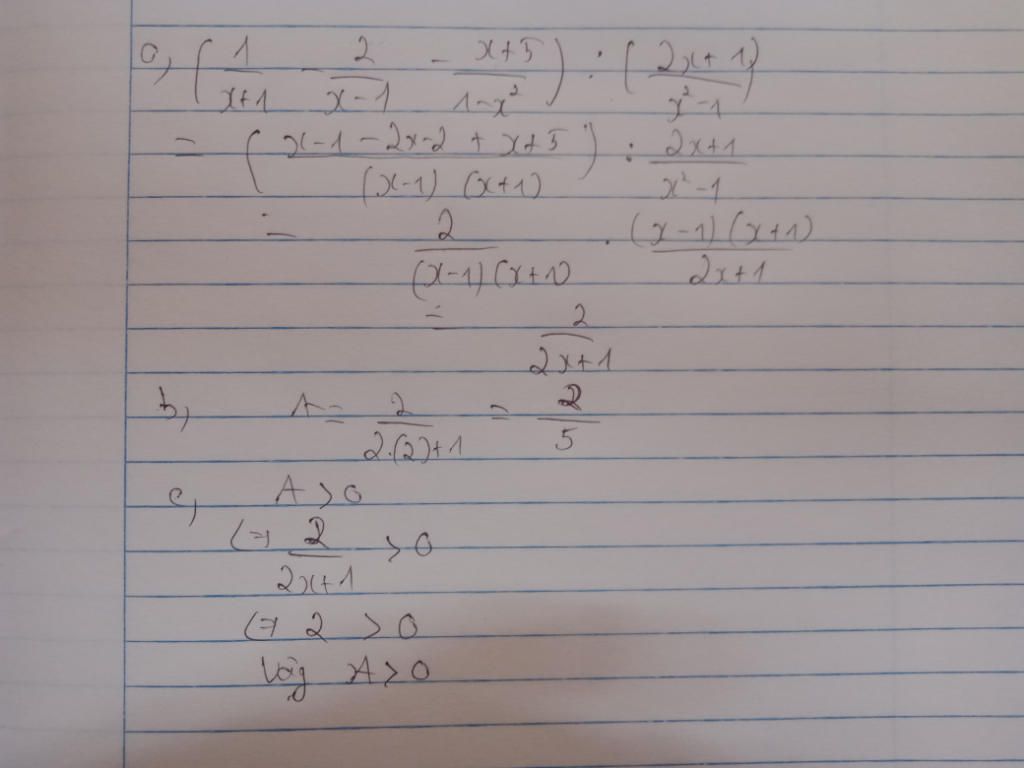 a, (1/(x+1) - 2/(x-1) - (x+5)/(1-x²)) : ((2x+1)/(x²-1))
= ((x-1-2x-2+x+5)/((x-1)(x+1))) : (2x+1)/(x²-1)
= 2/((x-1)(x+1)) . ((x-1)(x+1))/(2x+1)
= 2/(2x+1)
b, A = 2/(2.(2)+1) = 2/5
c, A > 0
(=> 2/(2x+1) > 0
(=> 2 > 0
Vậy A > 0